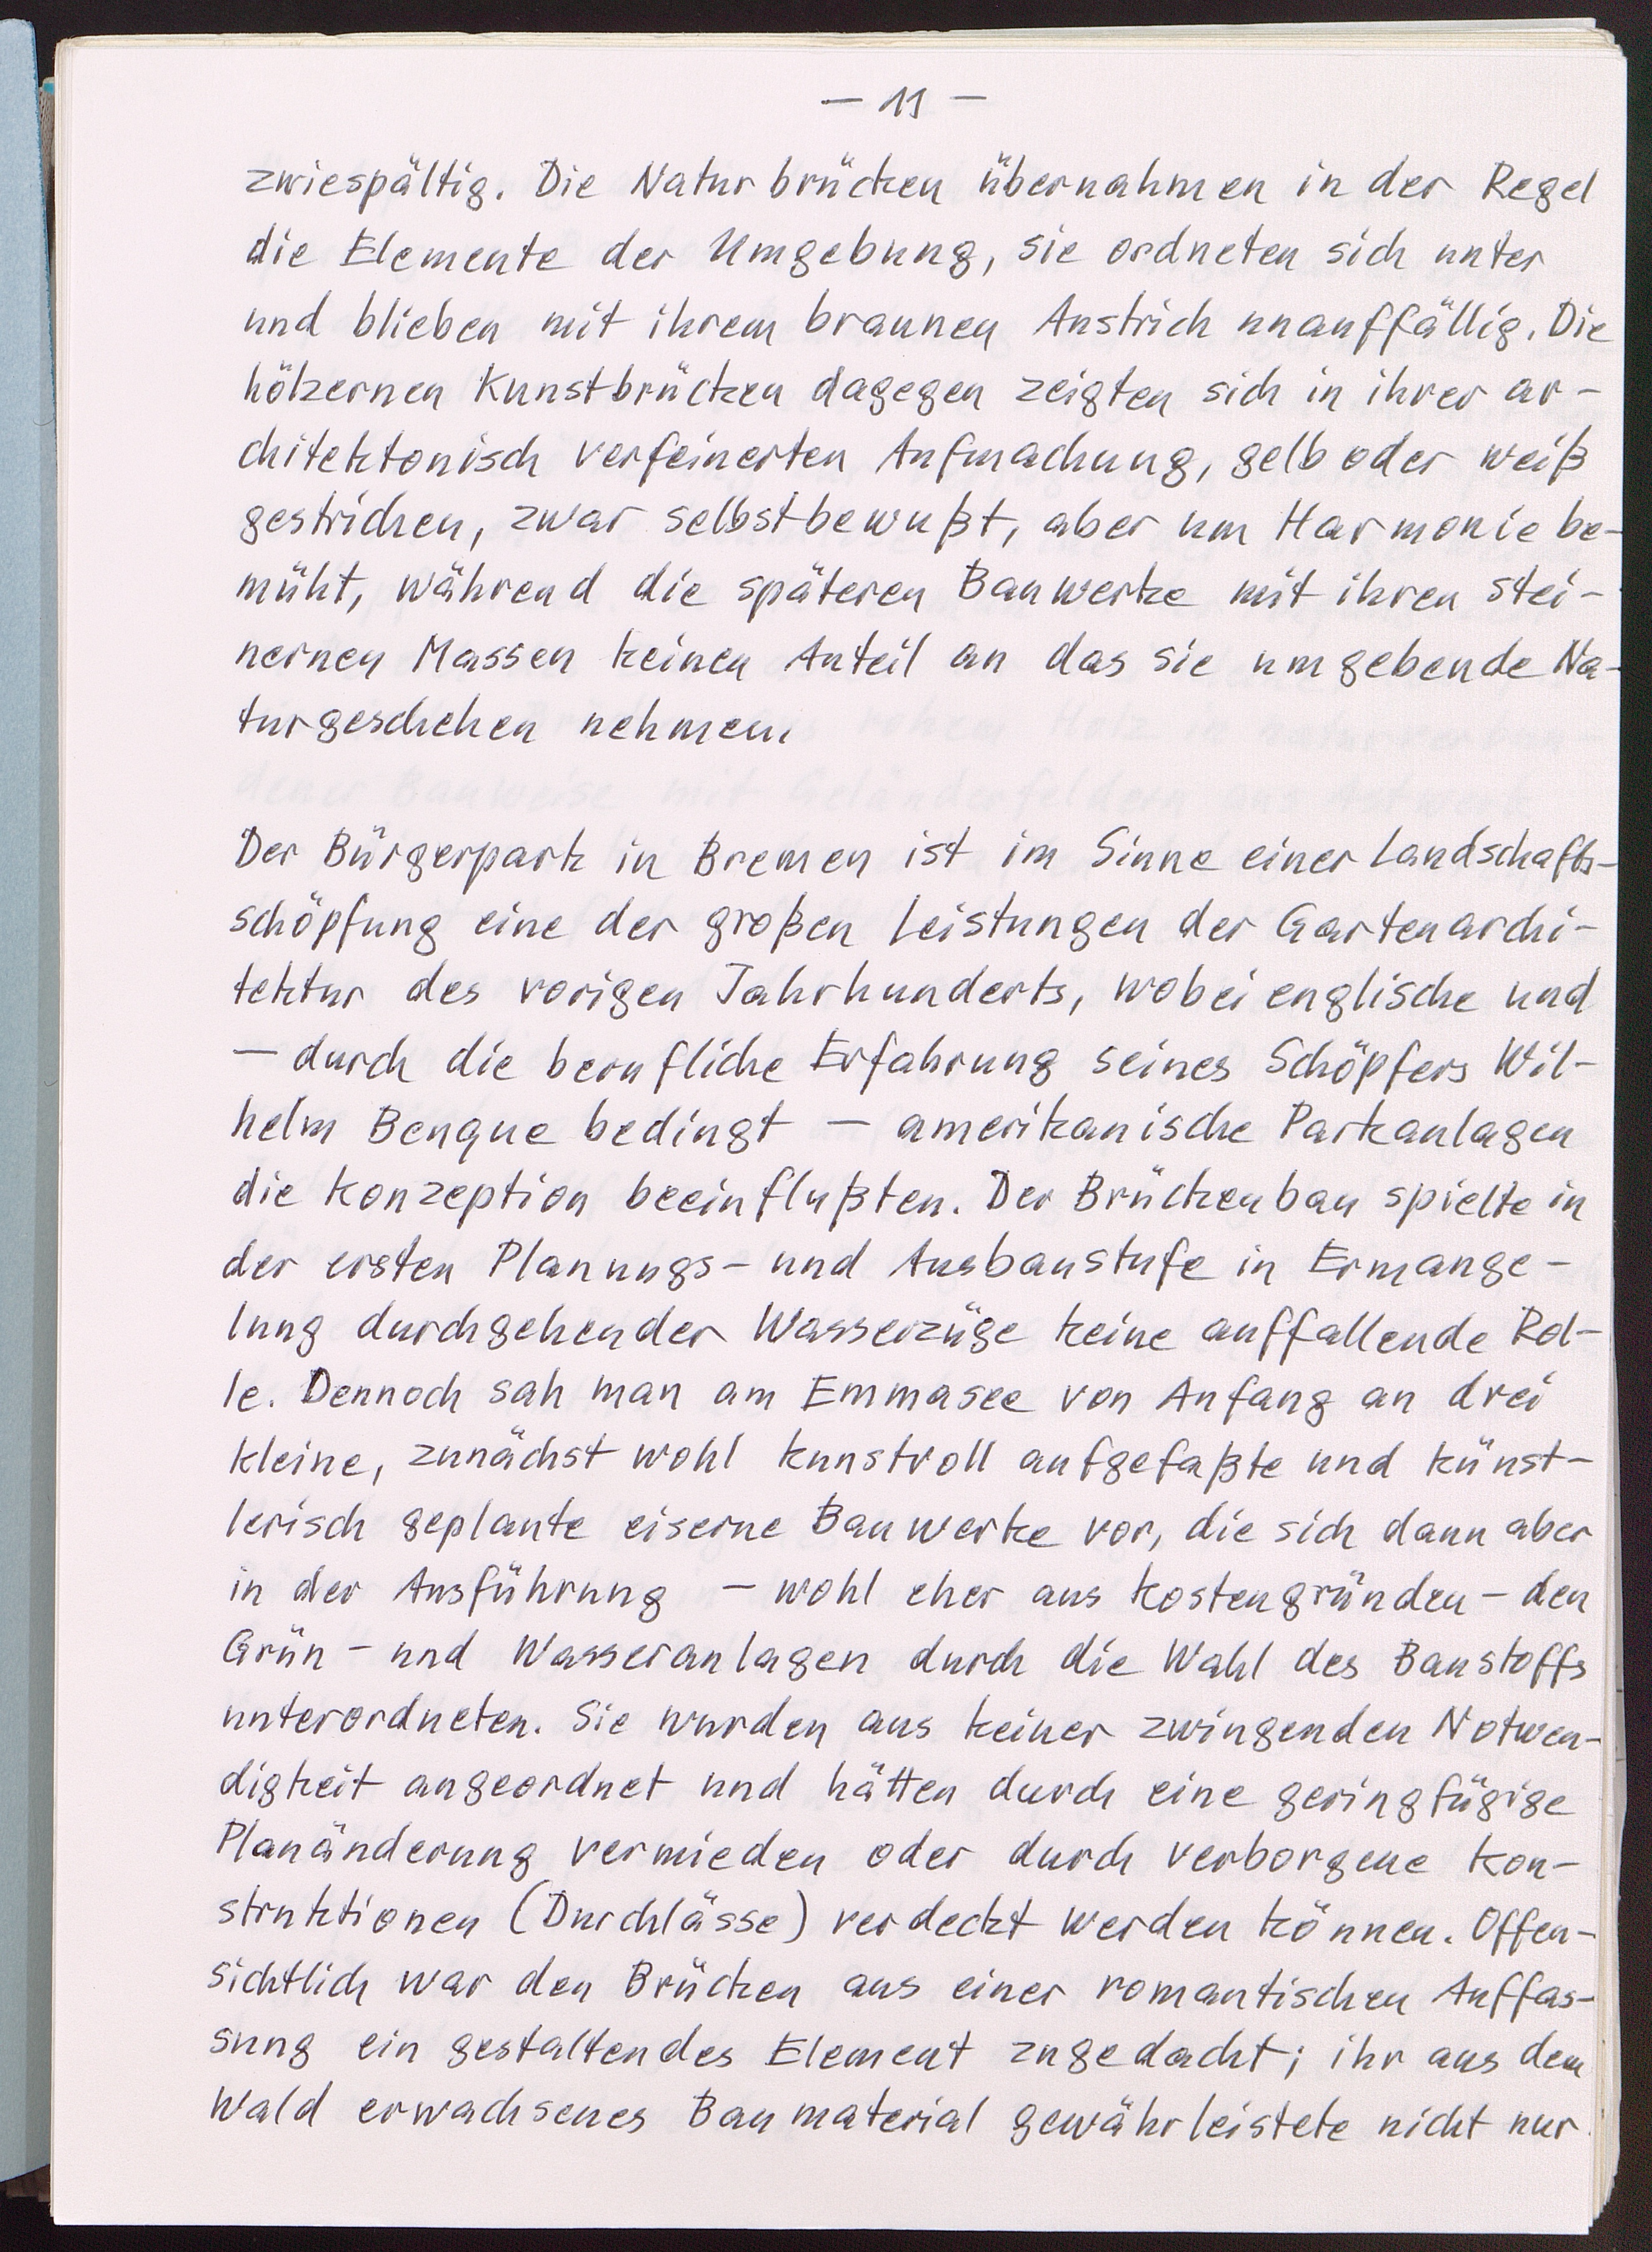 — 11 —
zwiespältig. Die Naturbrücken übernahmen in der Regel
die Elemente der Umgebung, sie ordneten sich unter
und blieben mit ihrem braunen Anstrich unauffällig. Die
hölzernen Kunstbrücken dagegen zeigten sich in ihrer ar-
chitektonisch verfeinerten Aufmachung, gelb oder weiß
gestrichen, zwar selbstbewußt, aber um Harmonie be-
müht, während die späteren Bauwerke mit ihren stei-
nernen Massen keinen Anteil an das sie umgebende Na-
turgeschehen nehmen.
Der Bürgerpark in Bremen ist im Sinne einer Landschafts-
schöpfung eine der großen Leistungen der Gartenarchi-
tektur des vorigen Jahrhunderts, wobei englische und
— durch die berufliche Erfahrung seines Schöpfers Wil-
helm Benque bedingt — amerikanische Parkanlagen
die Konzeption beeinflußten. Der Brückenbau spielte in
der ersten Planungs- und Ausbaustufe in Ermange-
lung durchgehender Wasserzüge keine auffallende Rol-
le. Dennoch sah man am Emmasee von Anfang an drei
kleine, zunächst wohl kunstvoll aufgefaßte und künst-
lerisch geplante eiserne Bauwerke vor, die sich dann aber
in der Ausführung — wohl eher aus Kostengründen — den
Grün- und Wasseranlagen durch die Wahl des Baustoffs
unterordneten. Sie wurden aus keiner zwingenden Notwen-
digkeit angeordnet und hätten durch eine geringfügige
Planänderung vermieden oder durch verborgene Kon-
struktionen (Durchlässe) verdeckt werden können. Offen-
sichtlich war den Brücken aus einer romantischen Auffas-
sung ein gestaltendes Element zugedacht; ihr aus dem
Wald erwachsenes Baumaterial gewährleistete nicht nur